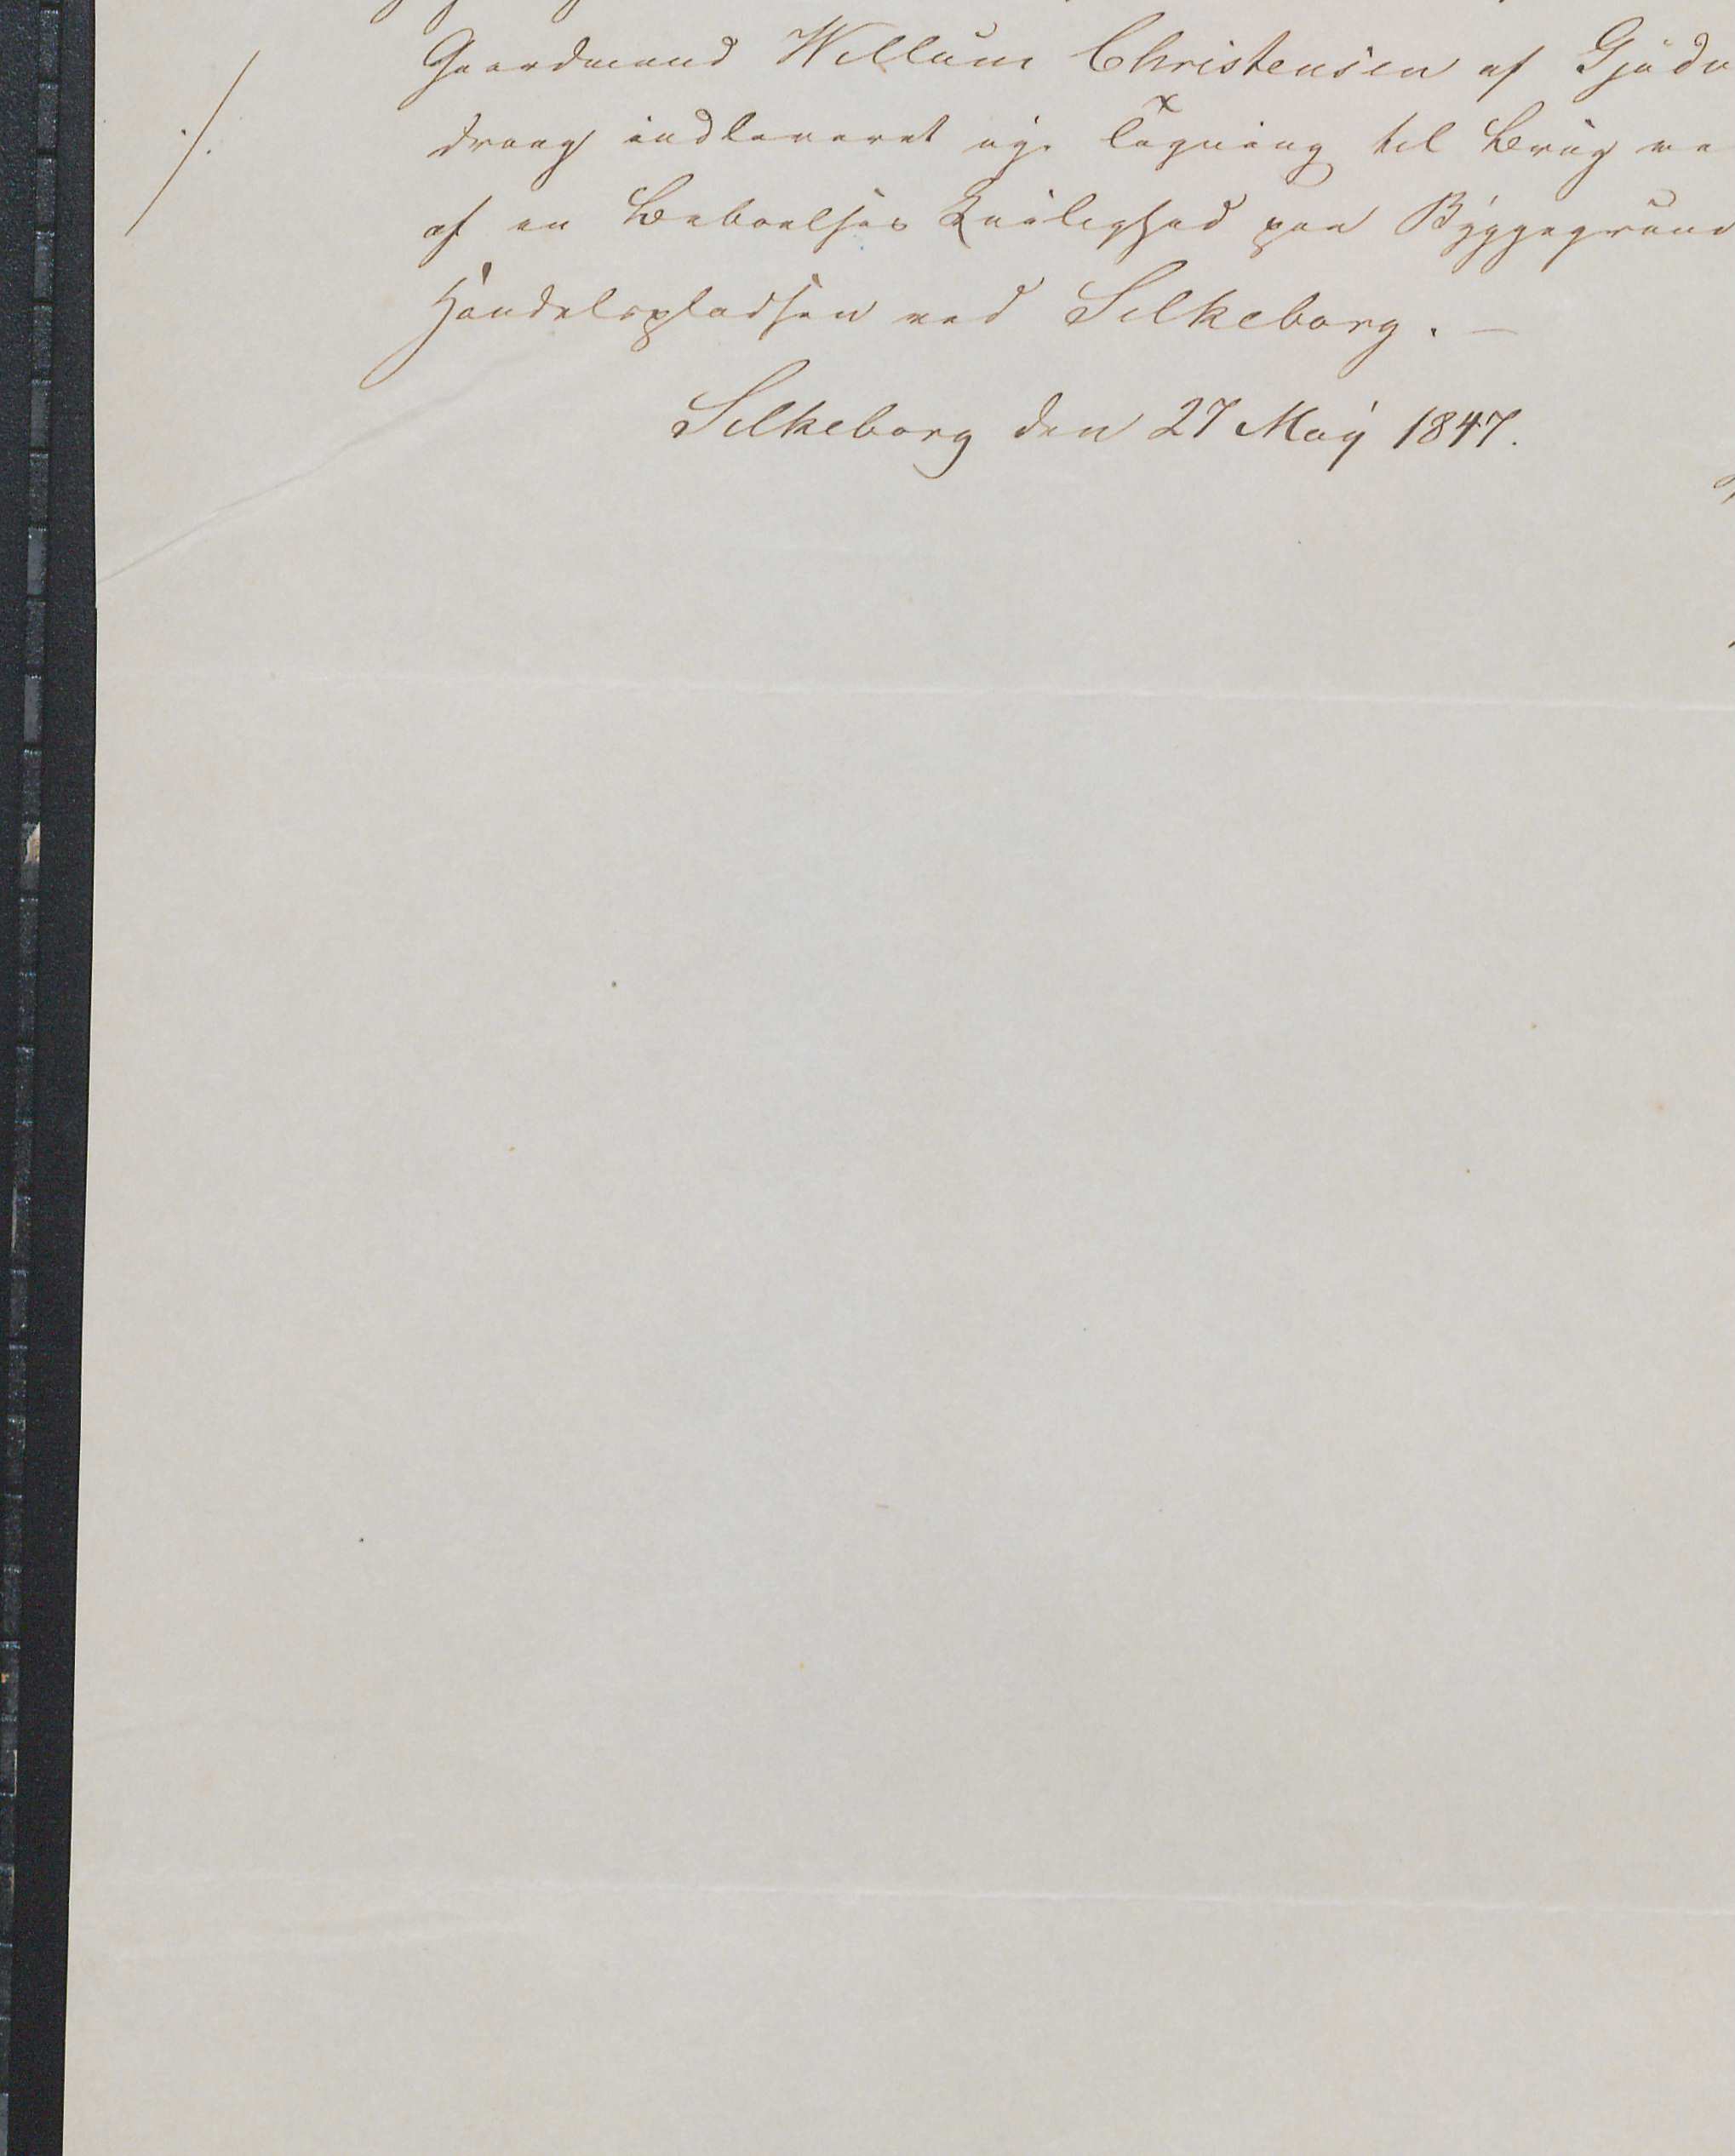 Gaardmand Willum Christensen af Gjødv
drang indleveret nye Tegning til Brug ve
af en Beboelses Leilighed paa Byggegrund
Handelspladsen ved Silkeborg. —
Silkeborg den 27 May 1847.